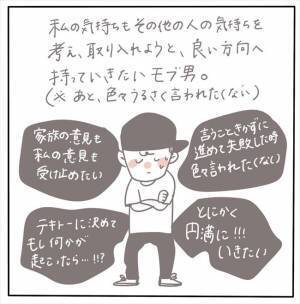 私の気持ちもその他の人の気持ちを
考え、取り入れようと、良い方向へ
持っていきたいモブ男。
(※あと、色々うるさく言われたくない)
家族の意見も
私の意見も
受け止めたい
言うこときかずに
進めて失敗した時
色々言われたくない
テキトーに決めて
もし何かが
起こったら…!!?
とにかく
円満に!!!
いきたい